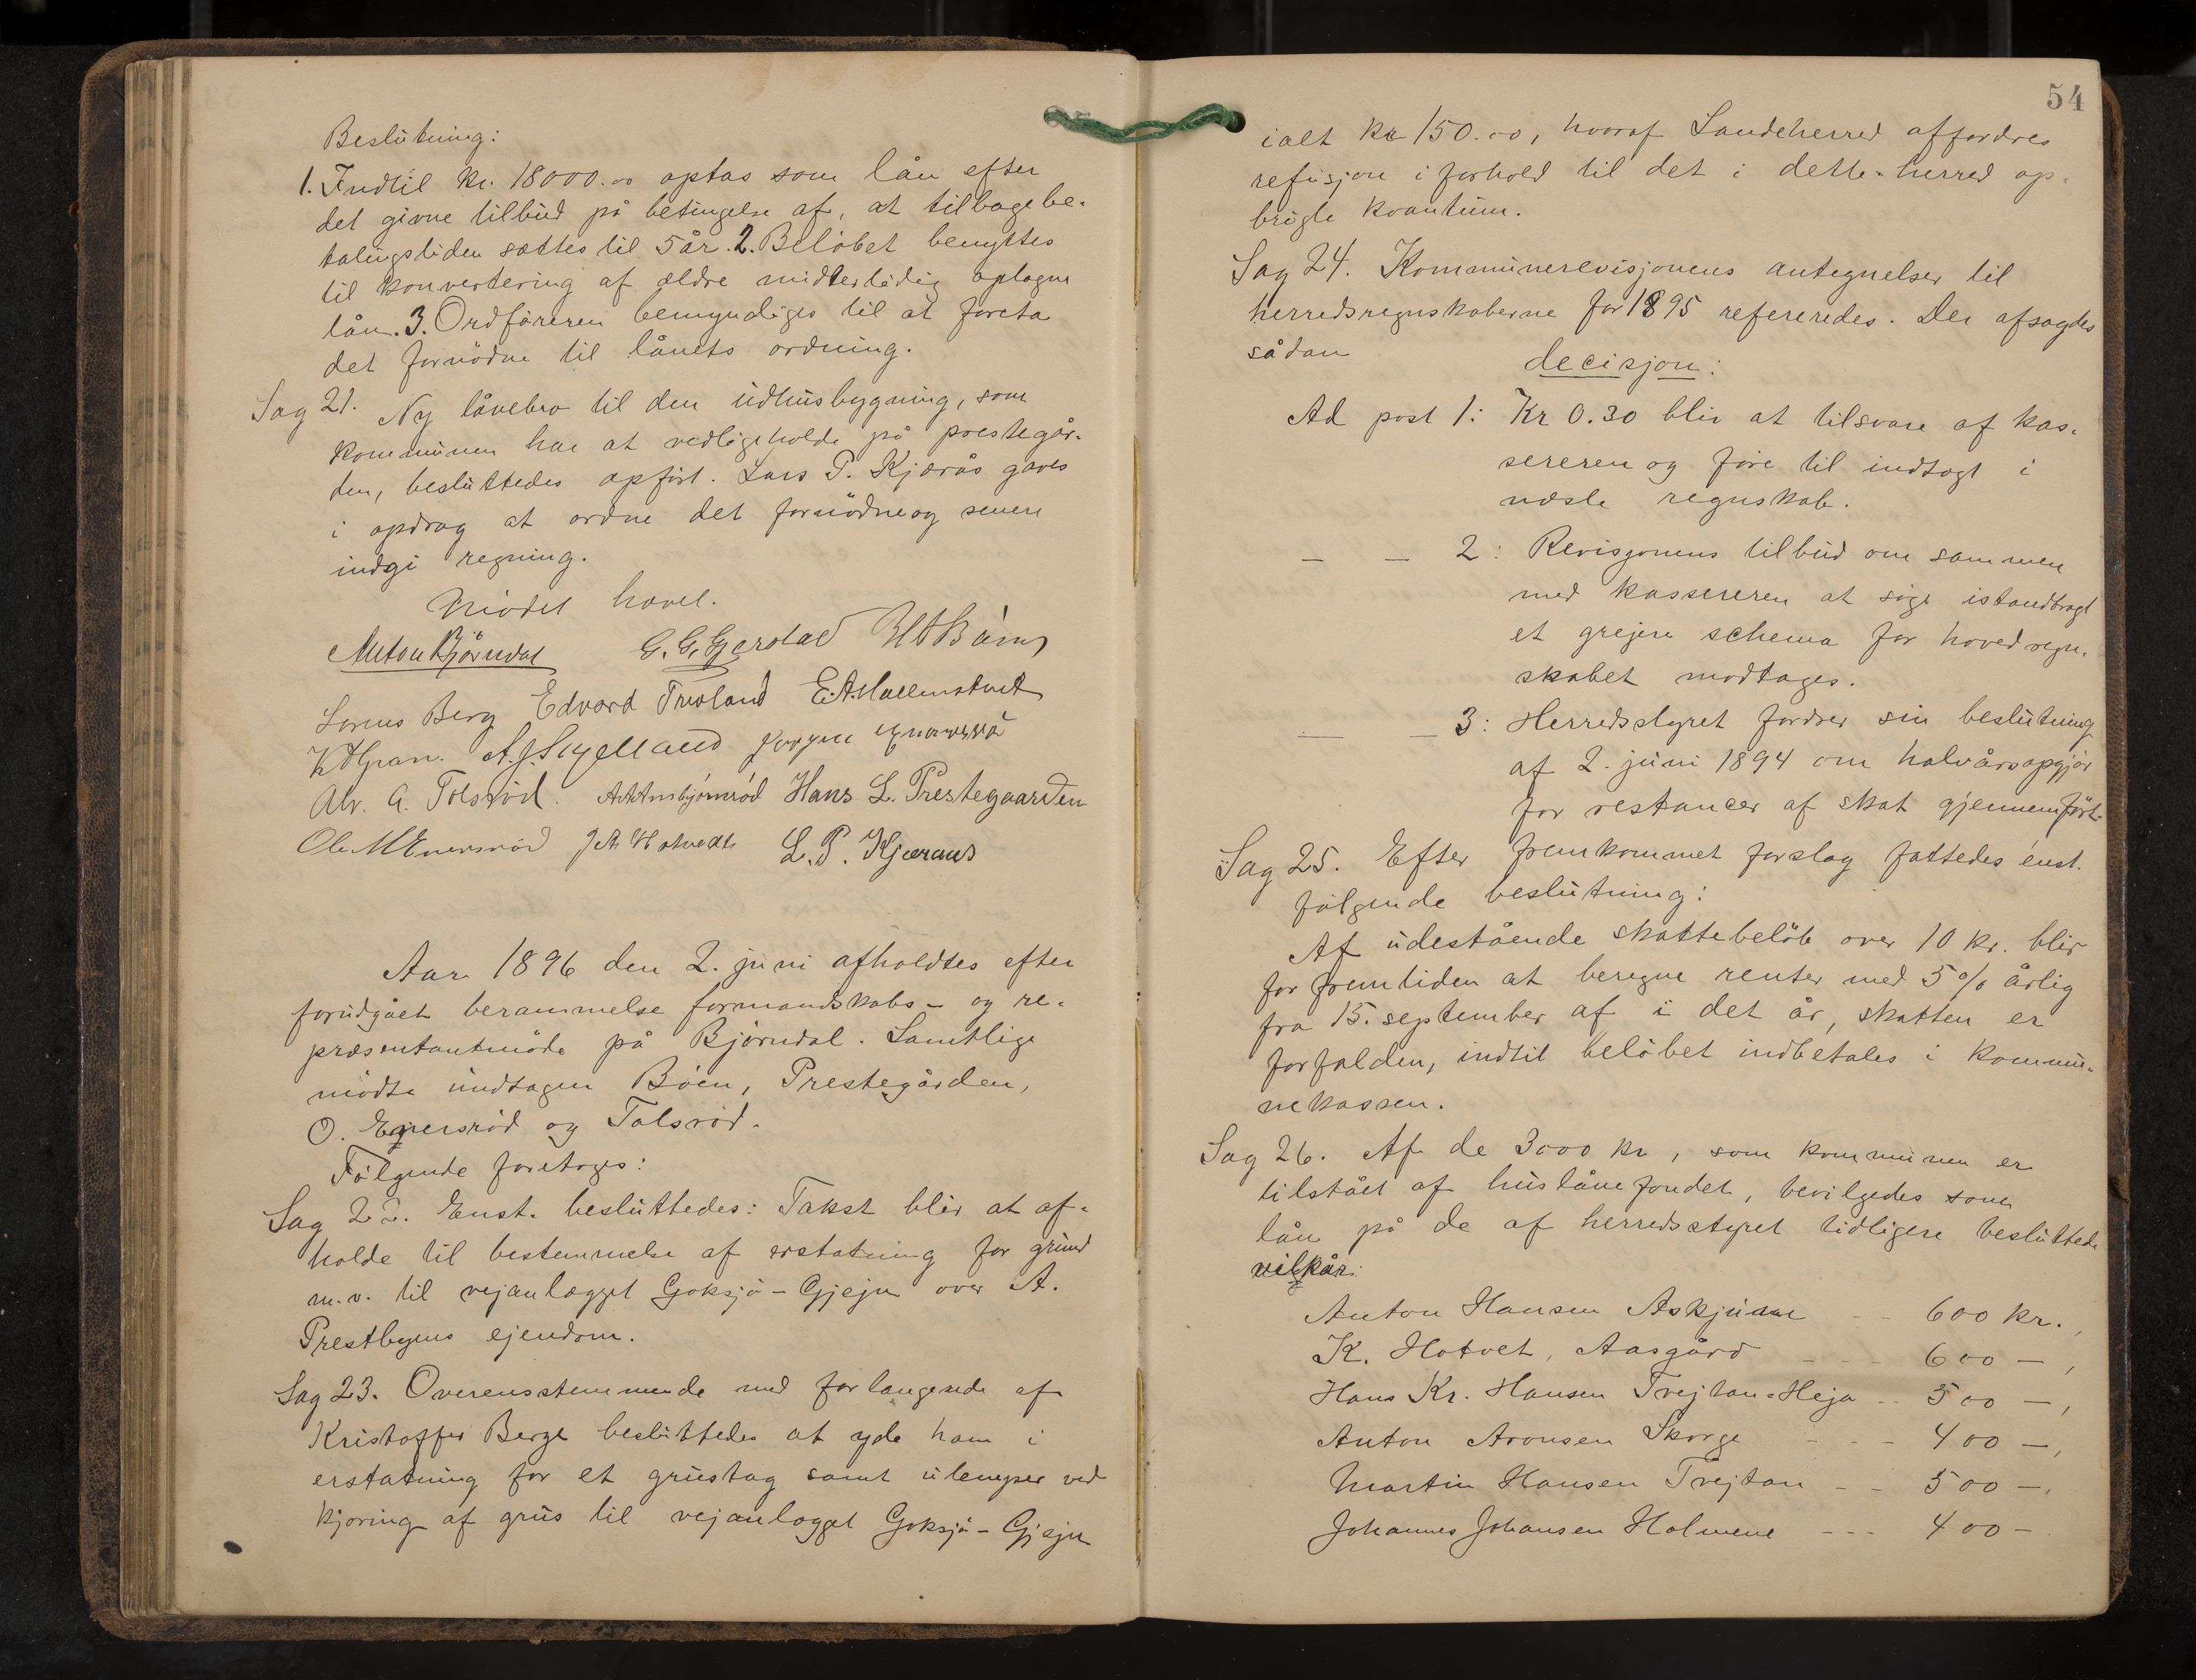 Beslutning:
1. Indtil kr. 18000.00 optas som lån efter
det givne tilbud på betingelse af, at tilbagebe-
talingstiden sættes til 5 år. 2. Beløbet benyttes
til konvertering af ældre midlertidig optagne
lån. 3. Ordføreren bemyndiges til at foreta
det fornødne til lånets ordning.
Sag 21. Ny låvebro til den udhusbygning, som
kommunen har at vedligeholde på prestegår-
den, besluttedes opført. Lars P. Kjærås gaves
i opdrag at ordne det fornødne og senere
indgi regning.
Mødet hævet.
Anton Bjørndal G. G. Gjerstad
Lorens Berg Edvard Trevland E. A. Mallemstvet
A. J. Skjelland
Alv. A. Tolsrød. A. Arnbjørnrød Hans L. Prestegaarden
Ole M Enersrød J. A. Hotvedt L. P. Kjæraas
Aar 1896 den 2. juni afholdtes efter
forudgået berammelse formandskabs- og re-
præsentantmøde på Bjørndal. Samtlige
mødte undtagen Bøen, Prestegården,
O. Enersrød og Tolsrød.
Følgende foretoges:
Sag 22. Enst. besluttedes: Takst blir at af-
holde til bestemmelse af erstatning for grund
m.v. til vejanlægget Goksjø – Gjejn over A.
Prestbyens ejendom.
Sag 23. Overensstemmende med forlangende af
Kristoffer Berge besluttedes at yde ham i
erstatning for et grustag samt ulemper ved
kjøring af grus til vejanlægget Goksjø – Gjejn
54
ialt kr 150.00, hvoraf Sandeherred affordres
refusjon i forhold til det i dette herred op-
brugte kvantum.
Sag 24. Kommunerevisjonens antegnelser til
herredsregnskaberne for 1895 refereredes. Der afsagdes
sådan
decisjon:
Ad post 1: Kr 0.30 blir at tilsvare af kas-
sereren og føre til indtægt i
næste regnskab.
— — 2: Revisjonens tilbud om sammen
med kassereren at søge istandbragt
et grejere schema for hovedregn-
skabet modtages.
— — 3: Herredsstyret fordrer sin beslutning
af 2. juni 1894 om halvårsopgjør
for restancer af skat gjennemført.
Sag 25. Efter fremkommet forslag fattedes enst.
følgende beslutning:
Af udestående skattebeløb over 10 kr. blir
for fremtiden at beregne renter med 5 % årlig
fra 15. september af i det år, skatten er
forfalden, indtil beløbet indbetales i kommu-
nekassen.
Sag 26. Af de 3000 kr, som kommunen er
tilstået af huslånefondet, bevilgedes som
lån på de af herredsstyret tidligere besluttede
vilkår:
Anton Hansen Askjum - - 600 kr.,
K. Hotvet, Aasgård - - - 600 —,
Hans Kr. Hansen Tvejtan-Heja - - 500 —,
Anton Aronsen Skorge - - - 400 —,
Martin Hansen Tvejtan - - 500 —,
Johannes Johansen Holmene - - - 400 —